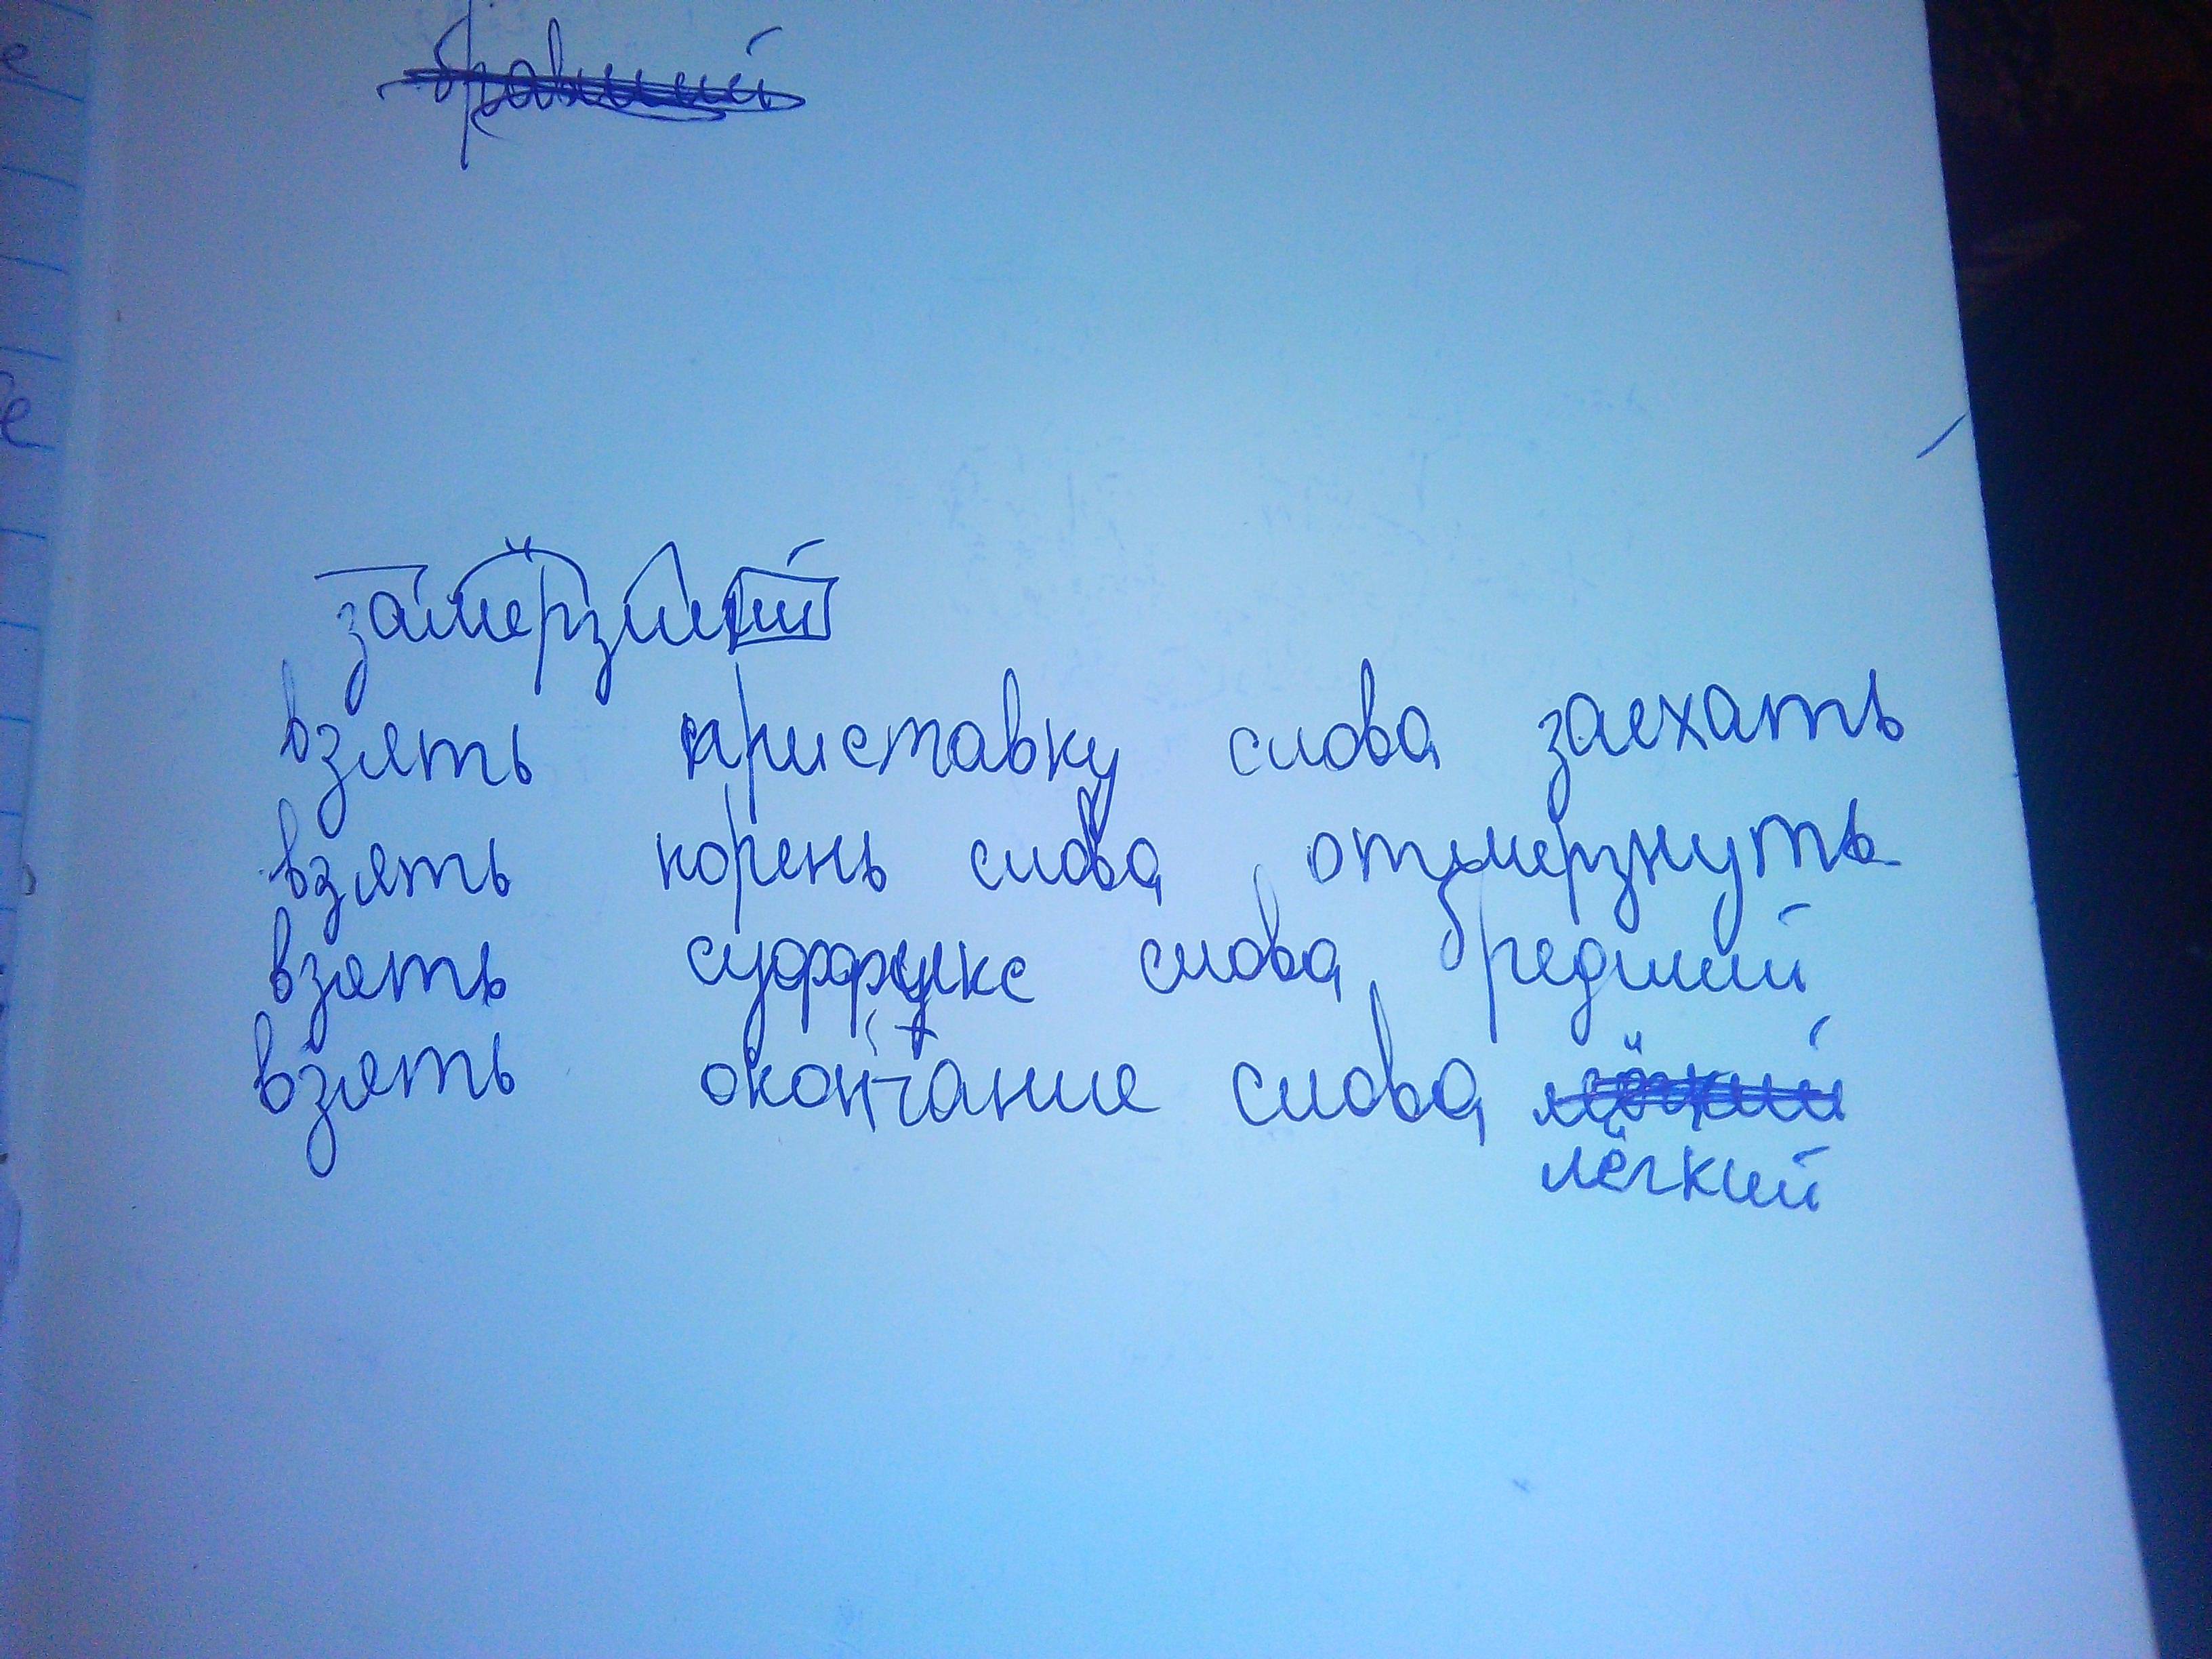 бравший
замёрзший
взять приставку слова заехать
взять корень слова отмерзнуть
взять суффикс слова бредший
взять окончание слова
лёгкий